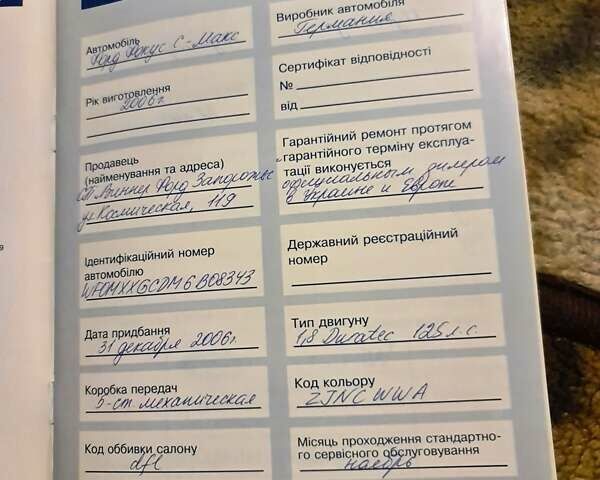 Автомобіль
Форд Фокус С-Макс
Рік виготовлення
2006г.
Продавець
(найменування та адреса)
СП Виннер Форд Запорожье
ул Космическая, 119
Ідентифікаційний номер
автомобілю
WF0MXXGCDM6B08343
Дата придбання
31 декабря 2006г.
Коробка передач
5-ст механическая
Код оббивки салону
dfl
Виробник автомобіля
Германия
Сертифікат відповідності
№
від
Гарантійний ремонт протягом
гарантійного терміну експлуа-
тації виконується
официальным дилером
в Украине и Европе
Державний реєстраційний
номер
Тип двигуну
1,8 Duratec 125 л.с.
Код кольору
ZJNCWWA
Місяць проходження стандартно-
го сервісного обслуговування
ноябрь